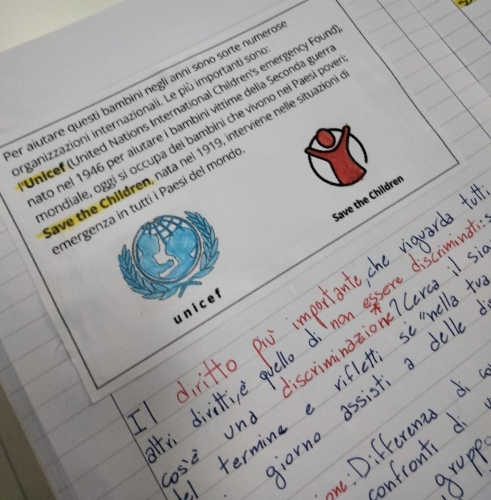 Per aiutare questi bambini negli anni sono sorte numerose
organizzazioni internazionali. Le più importanti sono:
l'Unicef (United Nations International Children's emergency Found),
nato nel 1946 per aiutare i bambini vittime della Seconda guerra
mondiale, oggi si occupa dei bambini che vivono nei Paesi poveri;
Save the Children, nata nel 1919, interviene nelle situazioni di
emergenza in tutti i Paesi del mondo.
unicef
Save the Children
Il diritto più importante, che riguarda tutti
altri diritti, è quello di non essere discriminati:
cos'è una discriminazione*? Cerca il
del termine e rifletti se "nella tua
giorno assisti a delle
Differenza di
confronti di